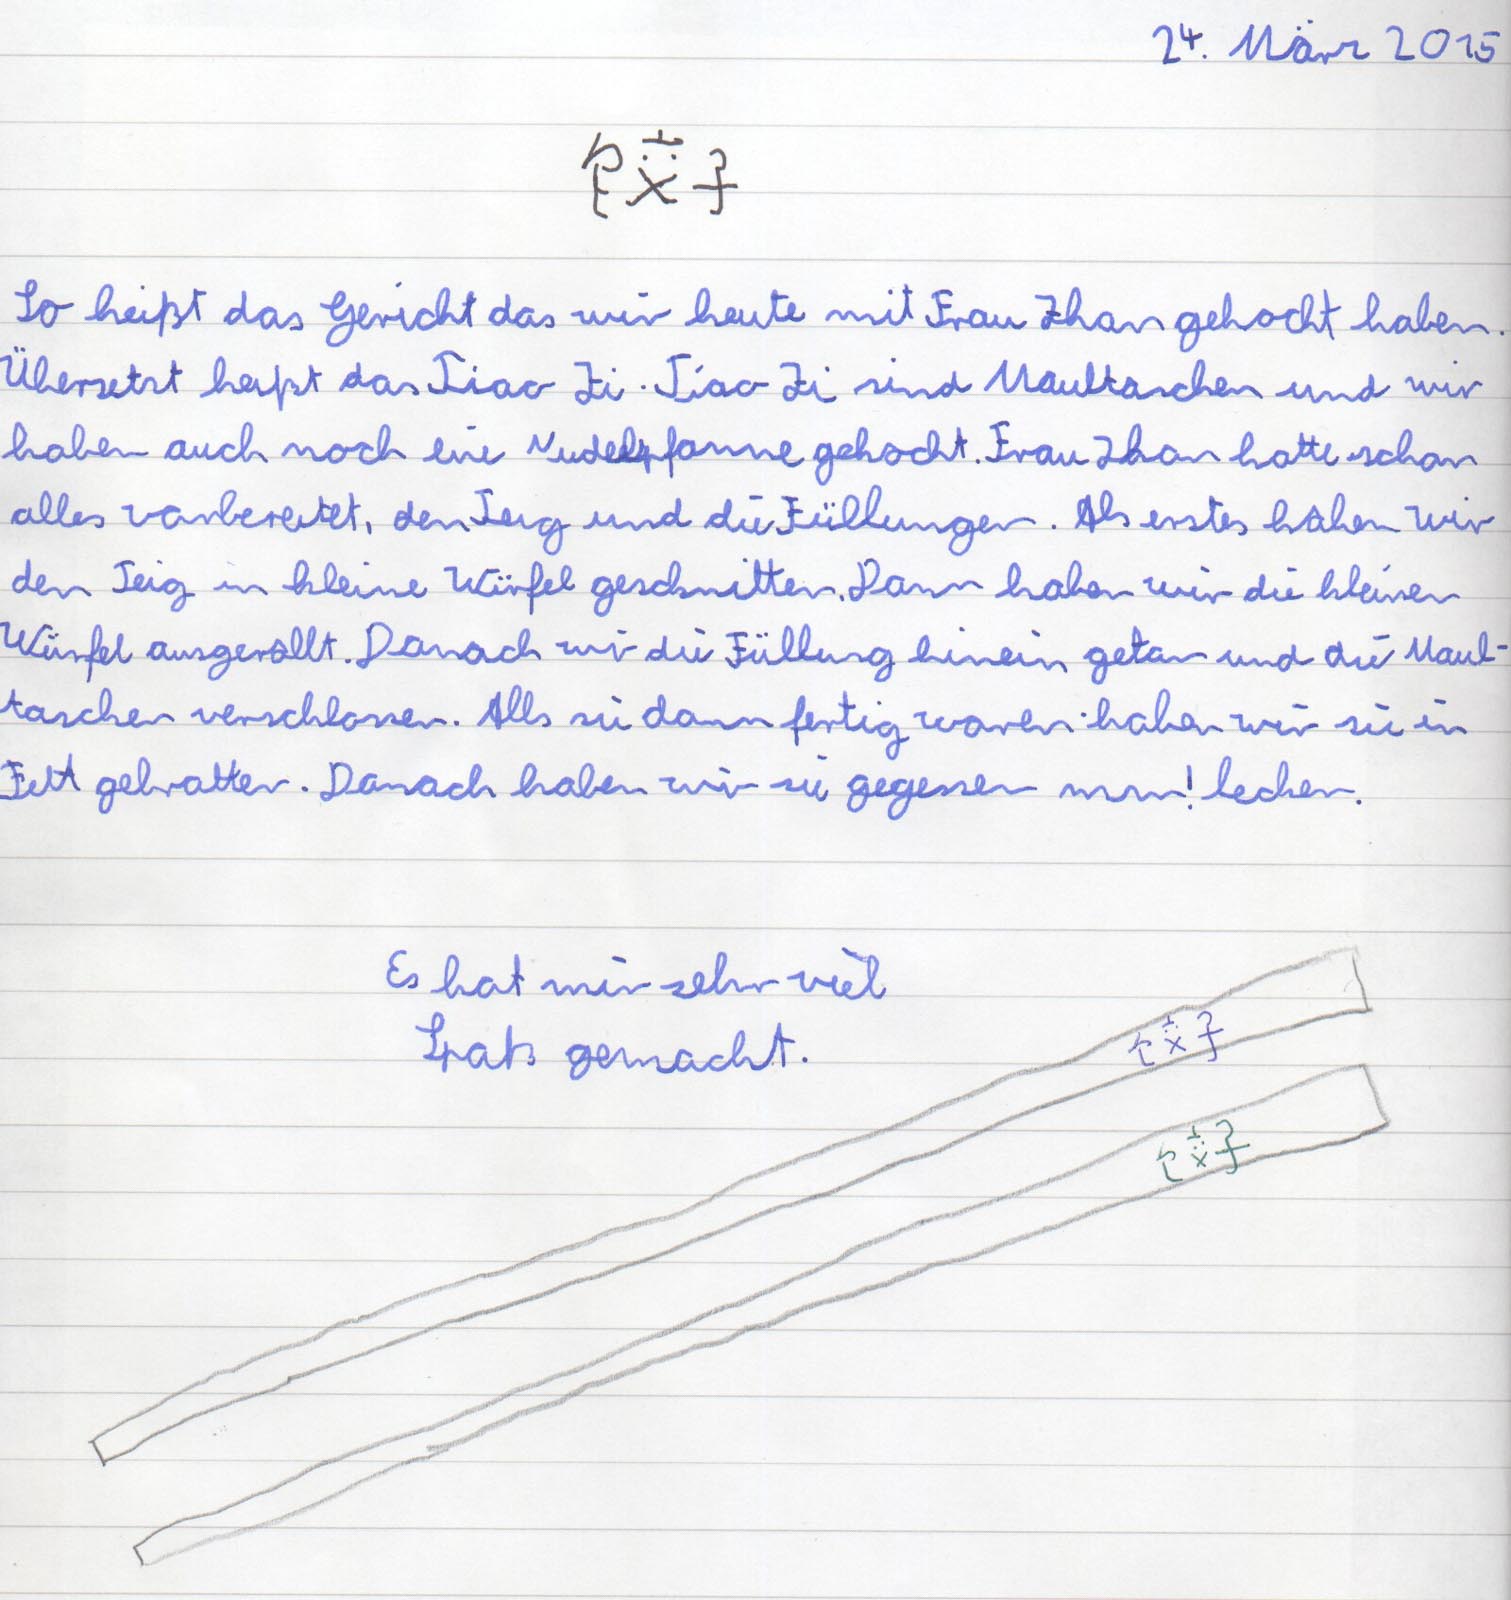 24. März 2015
饺子
So heißt das Gericht das wir heute mit Frau Zhan gekocht haben.
Übersetzt heißt das Jiao Zi. Jiao Zi sind Maultaschen und wir
haben auch noch eine Nudelpfanne gekocht. Frau Zhan hatte schon
alles vorbereitet, den Teig und die Füllungen. Als erstes haben wir
den Teig in kleine Würfel geschnitten. Dann haben wir die kleinen
Würfel ausgerollt. Danach wir die Füllung hinein getan und die Maul-
taschen verschlossen. Alls sie dann fertig waren haben wir sie in
Fett gebratten. Danach haben wir sie gegessen mm! lecker.
Es hat mir sehr viel
Spaß gemacht.
饺子
饺子